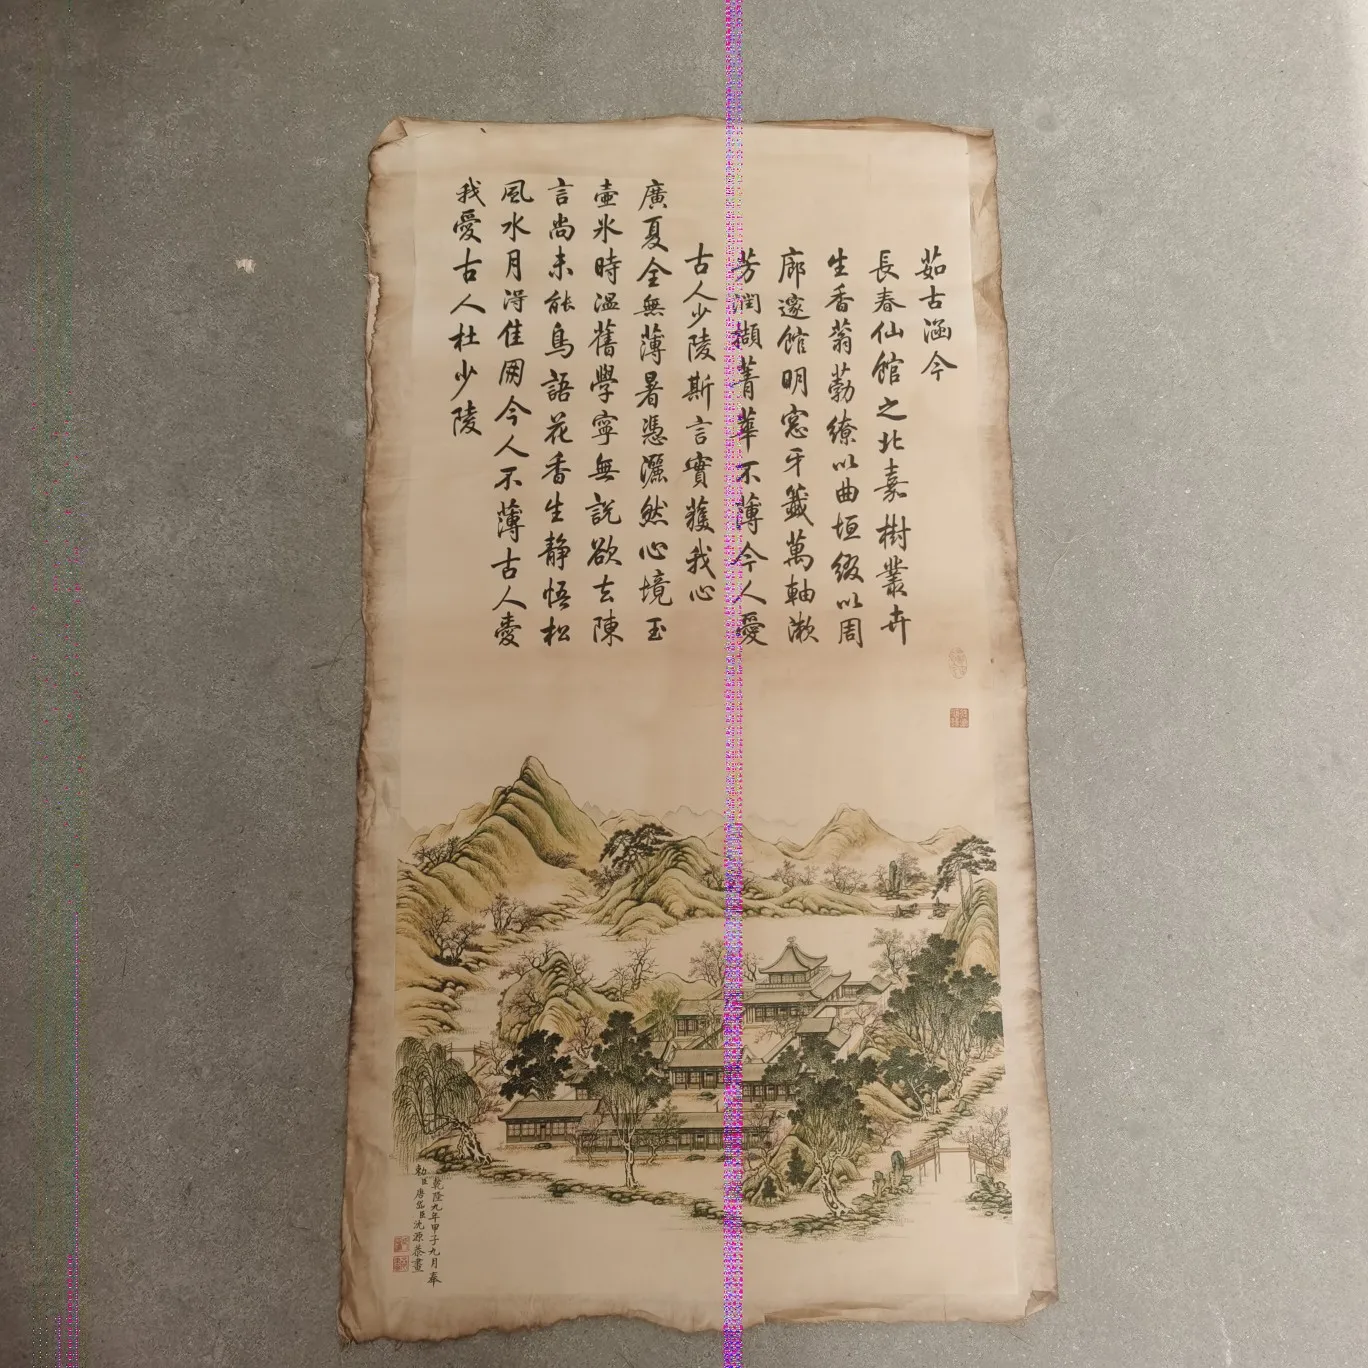 茹古涵今
長春仙館之北嘉樹叢卉
生香蓊葧繚以曲垣綴以周
廊邃館明窓牙籤萬軸漱
芳潤擷菁華不薄今人愛
古人少陵斯言實獲我心
廣夏全無薄暑憑灑然心境玉
壷氷時溫舊學寧無說欲去陳
言尚未能鳥語花香生静悟松
風水月淂佳朋今人不薄古人愛
我愛古人杜少陵
乾隆九年甲子九月奉
勅臣唐岱臣沈源恭畫